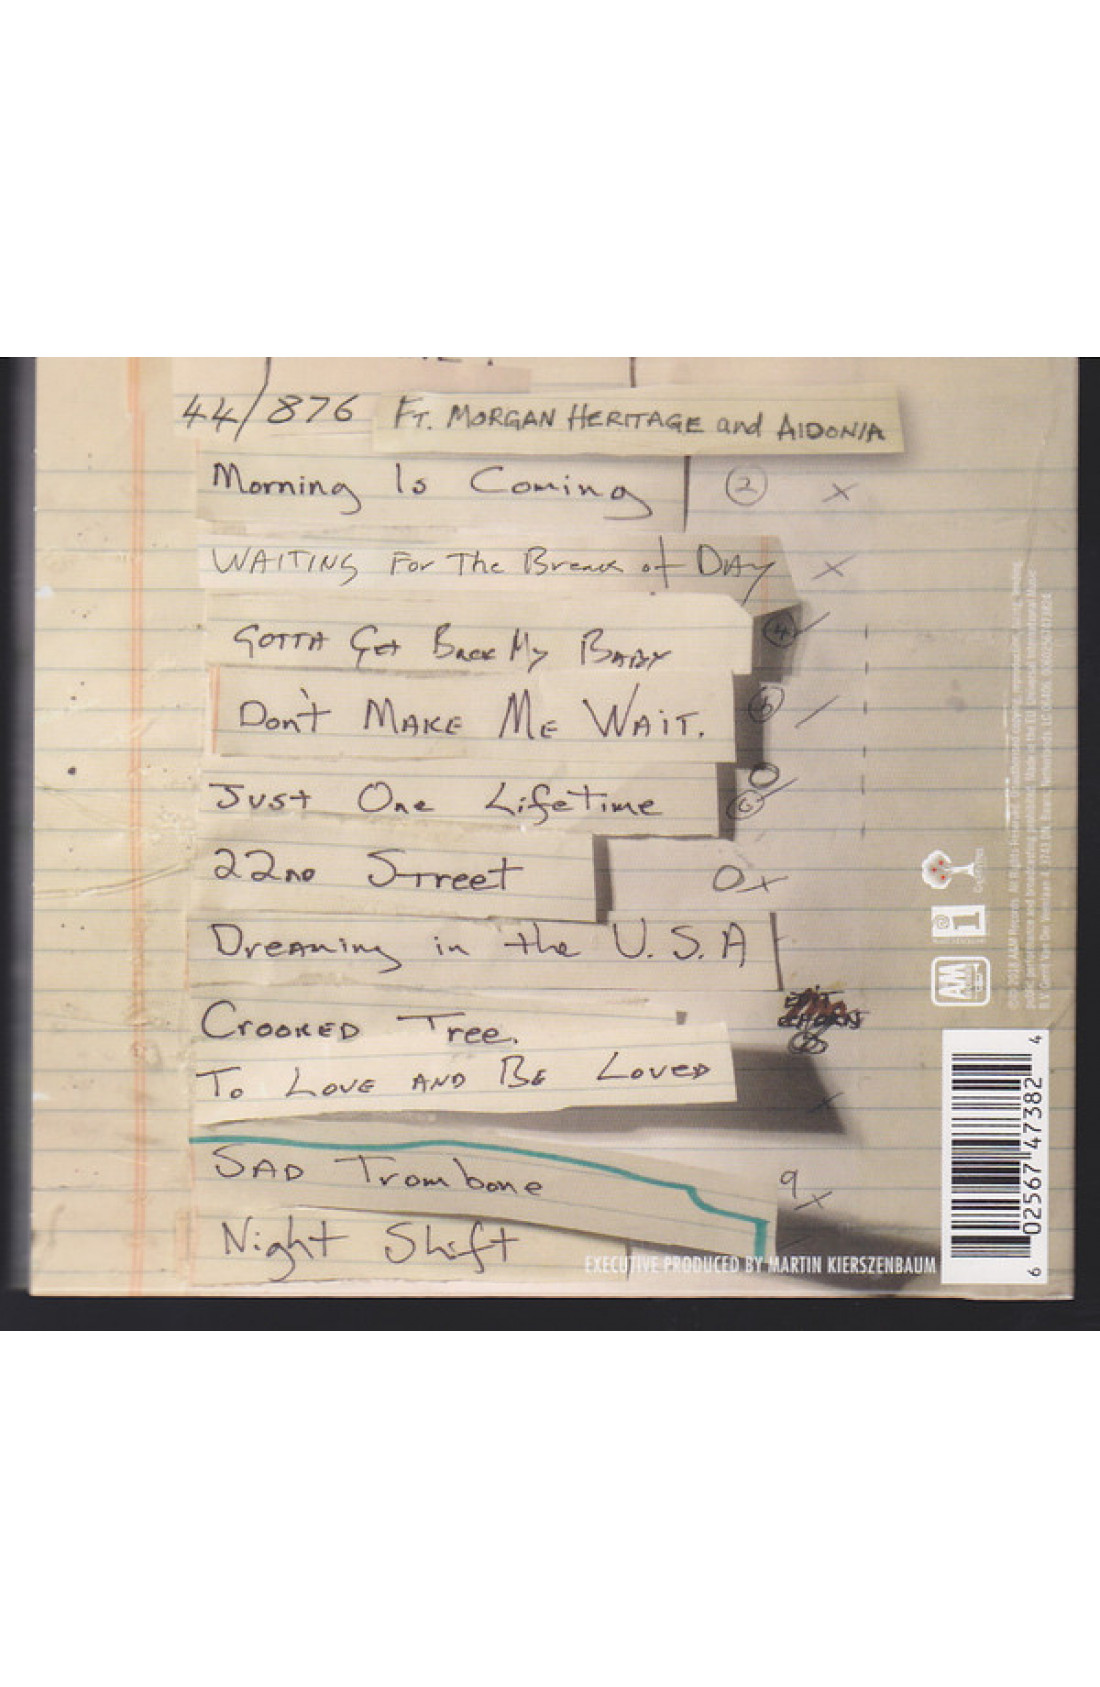 44/876 FT. MORGAN HERITAGE and AIDONIA
Morning Is Coming 2 x
WAITING For The Break of DAY x
GOTTA Get Back My BABY 4
Don't MAKE ME WAIT.
Just One Lifetime 6
22ND Street 0x
Dreaming in the U.S.A
CROOKED Tree.
To LOVE AND BE LOVED x
SAD Trombone 9 x
Night Shift
EXECUTIVE PRODUCED BY MARTIN KIERSZENBAUM
Cherrytree
AM
6 02567 47382 4